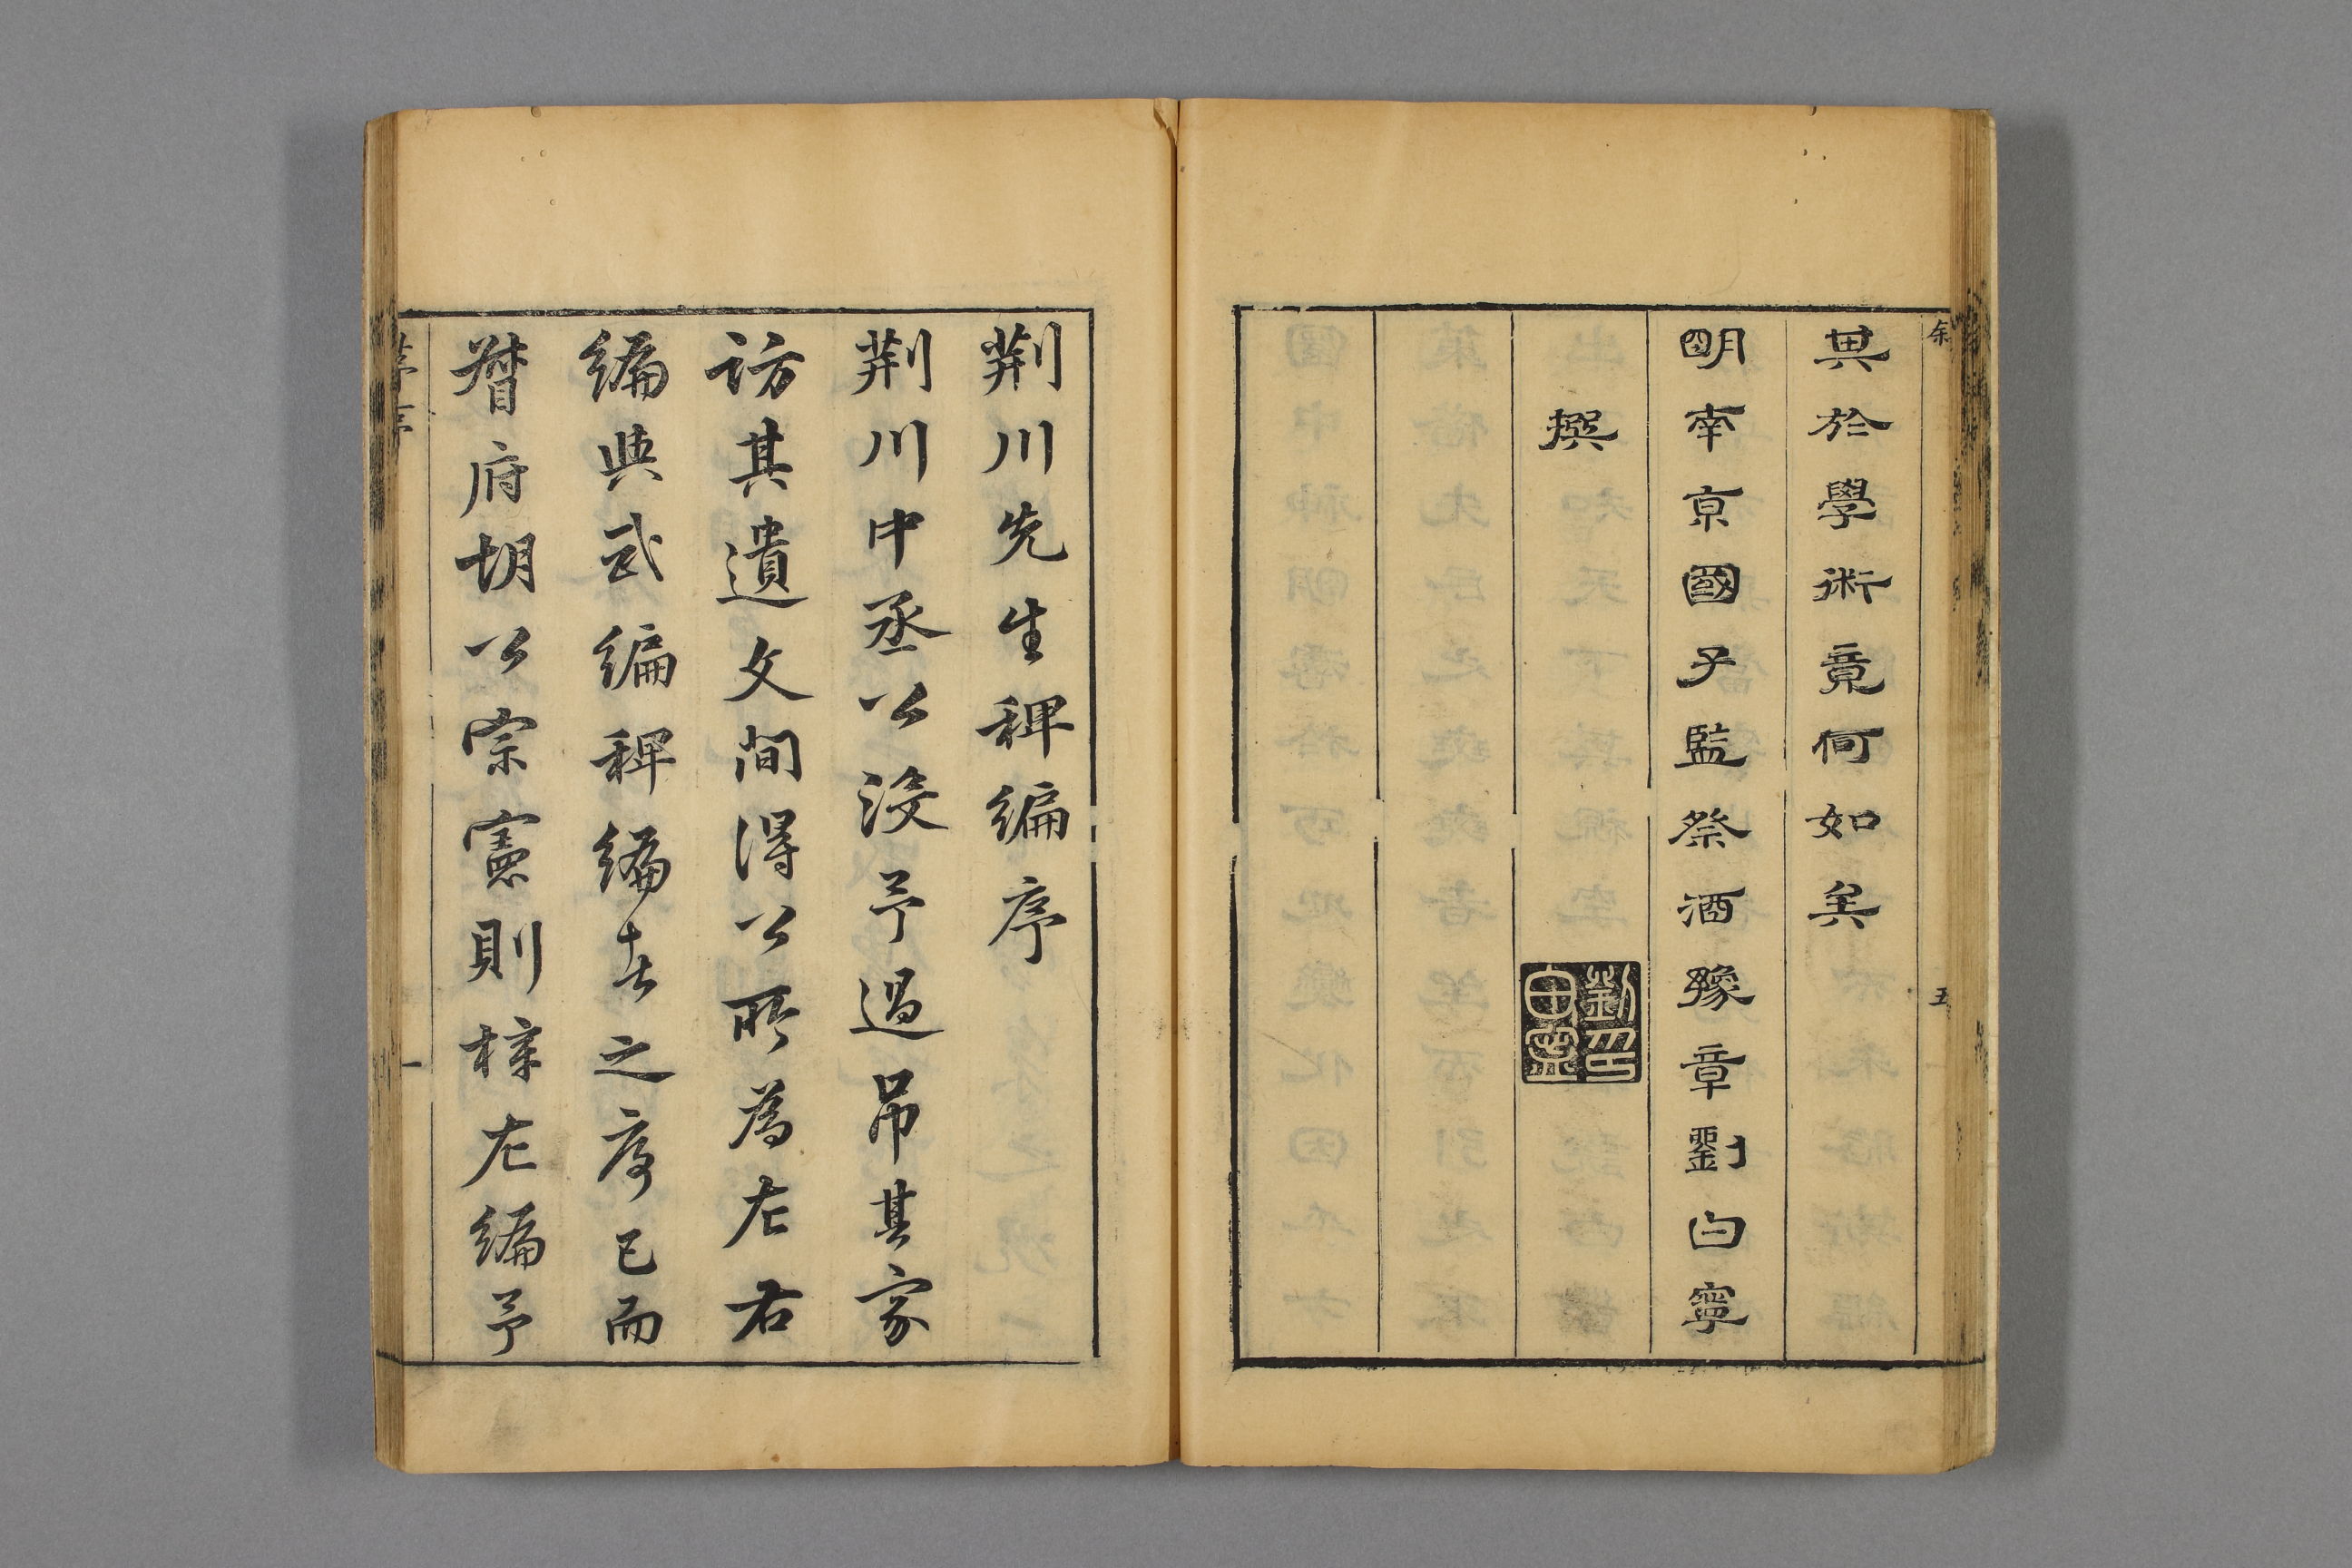 其於學術竟何如矣
明南京國子監祭酒豫章劉曰寧
撰
五
荆川先生稗編序
荆川中丞公沒予過吊其家
訪其遺文間得公所為左右
編與武編稗編者之序已而
督府胡公宗憲則梓左編予
一